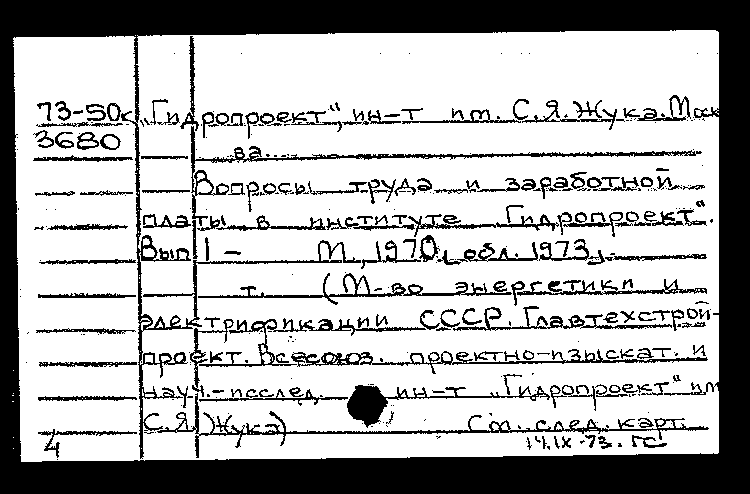 73-50к „Гидропроект“, ин-т им. С.Я.Жука. Моск
3680 ва.
Вопросы труда и заработной
платы в институте „Гидропроект“.
Вып 1 – М., 1970 [обл. 1973].
т. (М-во энергетики и
электрификации СССР. Главтехстрой-
проект. Всесоюз. проектно-изыскат. и
науч.-исслед. ин-т „Гидропроект“ им
С.Я. Жука) См. след. карт.
4 14.IX-73.